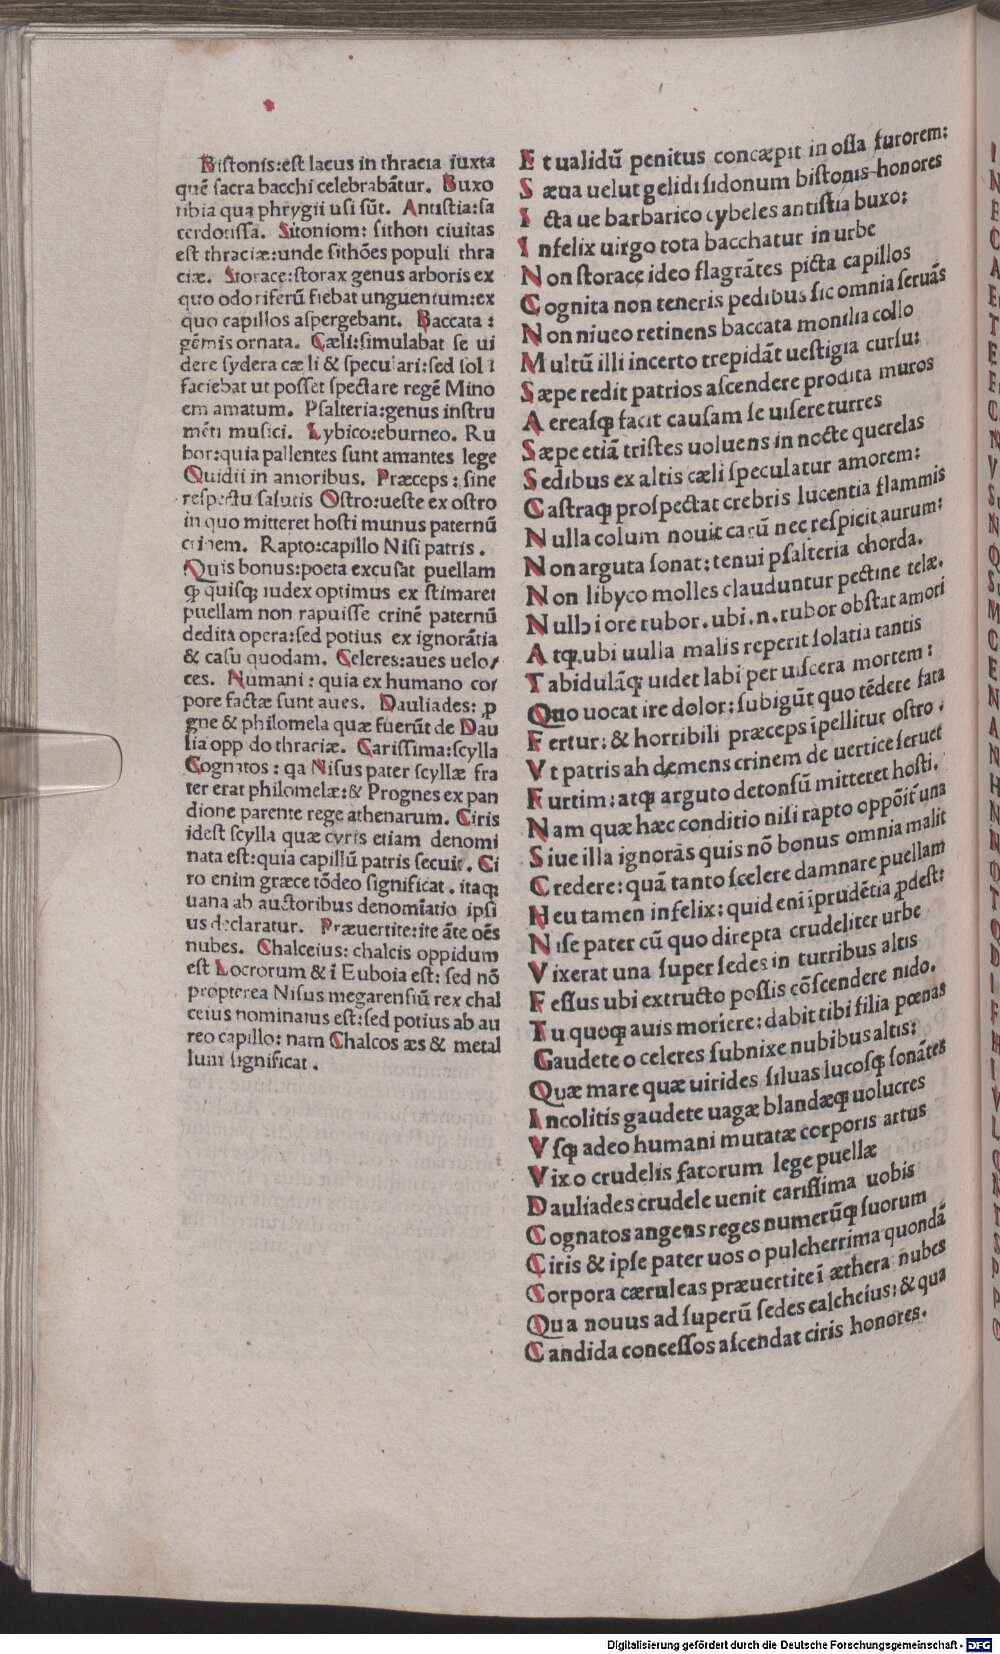 Bistonis:est lacus in thracia iuxta
quē sacra bacchi celebrabātur. Buxo
tibia qua phrygii usi sūt. Antistia:sa
cerdotissa. Sitoniom: sithon ciuitas
est thraciæ:unde sithōes populi thra
ciæ. Storace:storax genus arboris ex
quo odoriferū fiebat unguentum:ex
quo capillos aspergebant. Baccata:
gēmis ornata. Cæli:simulabat se ui
dere sydera cæli & speculari:sed sol i
faciebat ut posset spectare regē Mino
em amatum. Psalteria:genus instru
mēti musici. Lybico:eburneo. Ru
bor:quia pallentes sunt amantes lege
Ouidii in amoribus. Præceps: sine
respectu salutis Ostro:ueste ex ostro
in quo mitteret hosti munus paternū
crinem. Rapto:capillo Nisi patris.
Quis bonus:poeta excusat puellam
ꝙ quisqȝ iudex optimus ex stimaret
puellam non rapuisse crinē paternū
dedita opera:sed potius ex ignorātia
& casu quodam. Celeres:aues uelo/
ces. Numani: quia ex humano cor
pore factæ sunt aues. Dauliades: ꝓ
gne & philomela quæ fuerūt de Dau
lia opp do thraciæ. Carissima:scylla
Cognatos: qa Nisus pater scyllæ fra
ter erat philomelæ:& Prognes ex pan
dione parente rege athenarum. Ciris
idest scylla quæ cyris etiam denomi
nata est:quia capillū patris secuit. Ci
ro enim græce tōdeo significat. itaqȝ
uana ab auctoribus denomīatio ipsi
us declaratur. Præuertite:ite āte oēs
nubes. Chalceius: chalcis oppidum
est Locrorum & ī Euboia est: sed nō
propterea Nisus megarensiū rex chal
ceius nominatus est:sed potius ab au
reo capillo: nam Chalcos æs & metal
lum significat.
Et ualidū penitus concæpit in ossa furorem:
Sæua uelut gelidi sidonum bistonis honores
Icta ue barbarico cybeles antistia buxo:
Infelix uirgo tota bacchatur in urbe
Non storace ideo flagrātes picta capillos
Cognita non teneris pedibus sic omnia seruās
Non niueo retinens baccata monilia collo
Multū illi incerto trepidāt uestigia cursu:
Sæpe redit patrios ascendere prodita muros
Aereasqȝ facit causam se uisere turres
Sæpe etiā tristes uoluens in nocte querelas
Sedibus ex altis cæli speculatur amorem:
Castraqȝ prospectat crebris lucentia flammis
Nulla colum nouit carū nec respicit aurum:
Non arguta sonat: tenui psalteria chorda.
Non libyco molles clauduntur pectine telæ.
Nullo i ore rubor. ubi.n.rubor obstat amori
Atqȝ.ubi nulla malis reperit solatia tantis
Tabidulāqȝ uidet labi per uiscera mortem:
Quo uocat ire dolor: subigūt quo tēdere fata
Fertur: & horribili præceps īpellitur ostro.
Vt patris ah demens crinem de uertice seruet
Furtim: atqȝ arguto detonsū mitteret hosti.
Nam quæ hæc conditio nisi rapto oppōit una
Siue illa ignorās quis nō bonus omnia malit
Credere: quā tanto scelere damnare puellam
Heu tamen infelix: quid eni īprudētia ꝓdest:
Nise pater cū quo direpta crudeliter urbe
Vixerat una super sedes in turribus altis
Fessus ubi extructo possis cōscendere nido.
Tu quoqȝ auis moriere: dabit tibi filia pœnas
Gaudete o celeres subnixe nubibus altis:
Quæ mare quæ uirides siluas lucosqȝ sonātes
Incolitis gaudete uagæ blandæqȝ uolucres
Vsqȝ adeo humani mutatæ corporis artus
Vix o crudelis fatorum lege puellæ
Dauliades crudele uenit carissima uobis
Cognatos angens reges numerūqȝ suorum
Ciris & ipse pater uos o pulcherrima quondā
Corpora cæruleas præuertite ī æthera nubes
Qua nouus ad superū sedes calcheius: & qua
Candida concessos ascendat ciris honores.
Digitalisierung gefördert durch die Deutsche Forschungsgemeinschaft - DFG